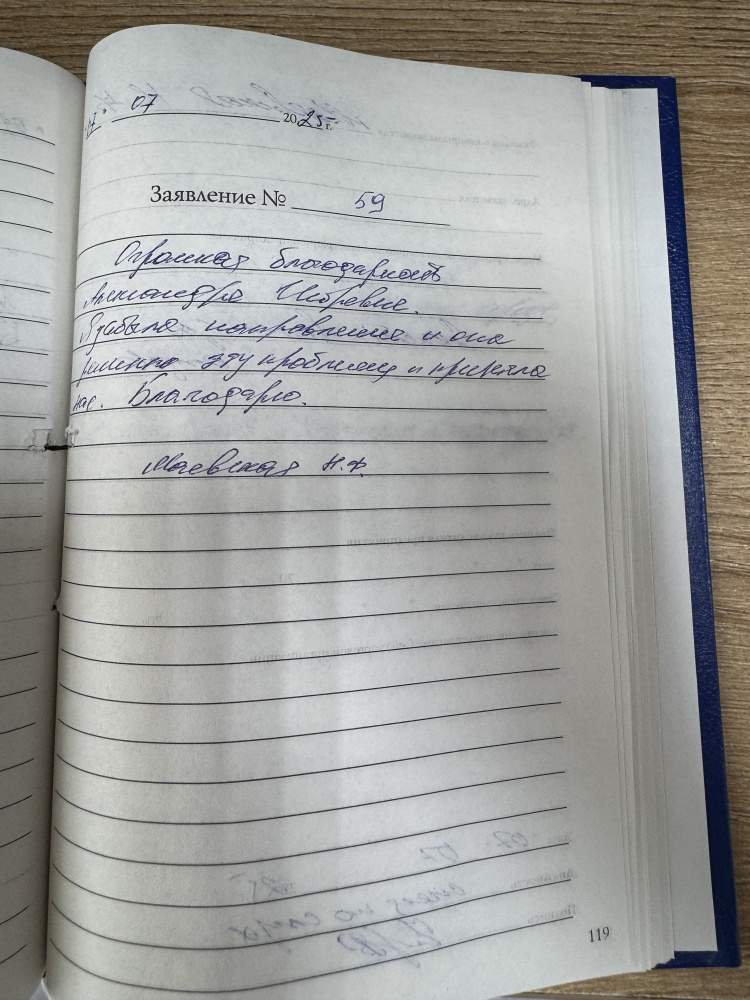 07. 07 2025 г.
Заявление № 59
Огромная благодарность
Александре Игоревне.
Я забыла направление и она
решила эту проблему и приняла
нас. Благодарю.
Маевская Н.Ф.
119